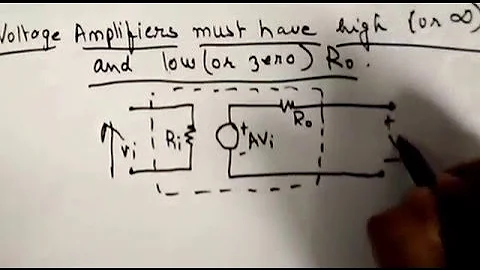 Voltage Amplifiers must have high (or ∞)
and low (or zero) Ro.
Ro
+
Vi
Ri
+
AVi
-
+
-